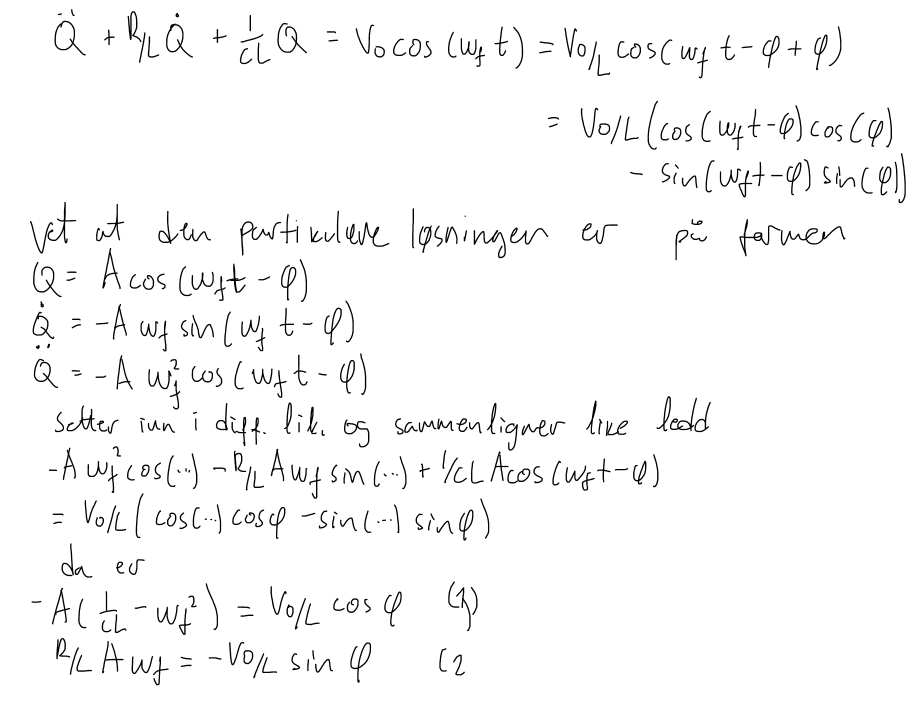 Q̈ + R/L Q̇ + 1/CL Q = V₀cos(ω_f t) = V₀/L cos(ω_f t - φ + φ)
= V₀/L (cos(ω_f t-φ)cos(φ)
- sin(ω_f t-φ) sin(φ))
Vet at den partikulære løsningen er på formen
Q = A cos(ω_f t - φ)
Q̇ = -A ω_f sin(ω_f t - φ)
Q̈ = -A ω_f² cos(ω_f t - φ)
setter inn i diff. lik. og sammenligner like ledd
-A ω_f² cos(...) - R/L A ω_f sin(...) + 1/CL A cos(ω_f t-φ)
= V₀/L ( cos(...) cosφ - sin(...) sinφ)
da er
-A( 1/CL - ω_f² ) = V₀/L cos φ (1)
R/L A ω_f = -V₀/L sin φ (2